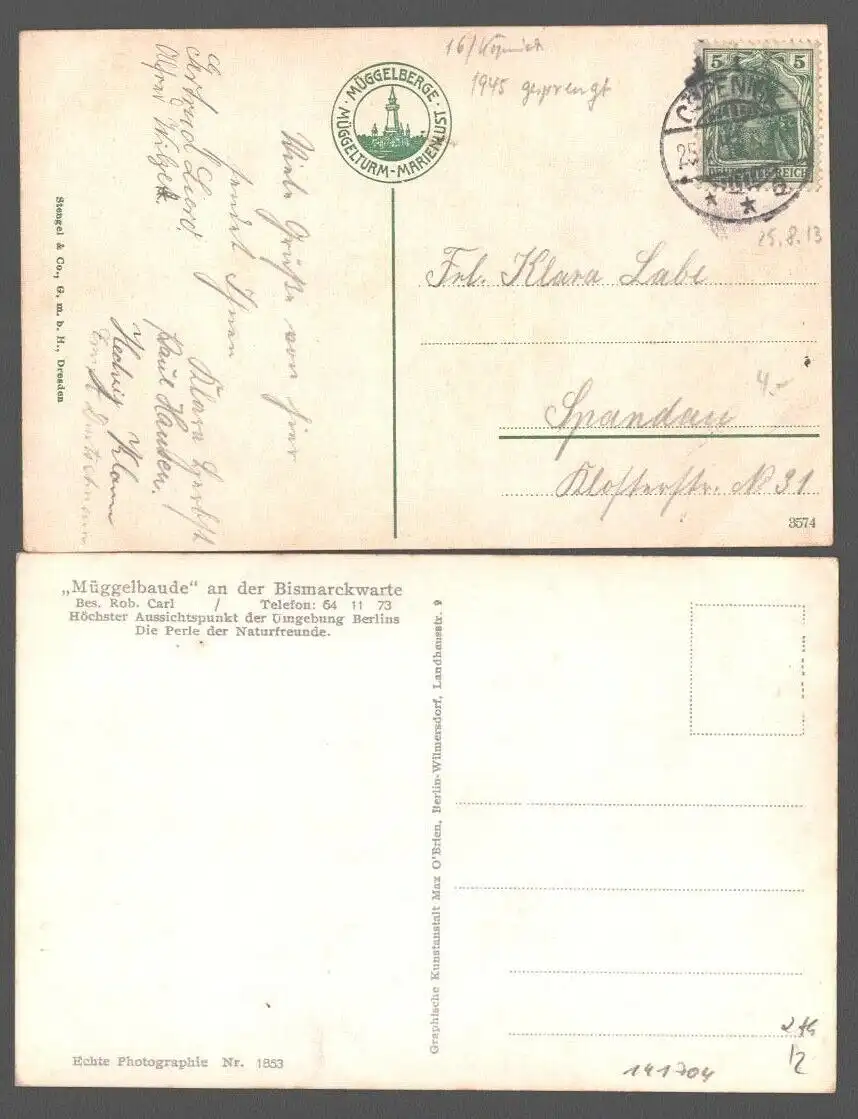 16/ Köpenick
1945 gesprengt
MÜGGELBERGE · MÜGGELTURM-MARIENLUST ·
5 5
CÖPENICK
25
25.8.13
Viele Grüße von hier
sendet Ihnen
Gertrud
Klara
Paul Hansen.
Hedwig
Frl. Klara Labe
4.-
Spandau
Klosterstr. No 31
Stengel & Co., G. m. b. H., Dresden
3574
„Müggelbaude“ an der Bismarckwarte
Bes. Rob. Carl / Telefon: 64 11 73
Höchster Aussichtspunkt der Umgebung Berlins
Die Perle der Naturfreunde.
Graphische Kunstanstalt Max O'Brien, Berlin-Wilmersdorf, Landhausstr. 9
Echte Photographie Nr. 1853
141704